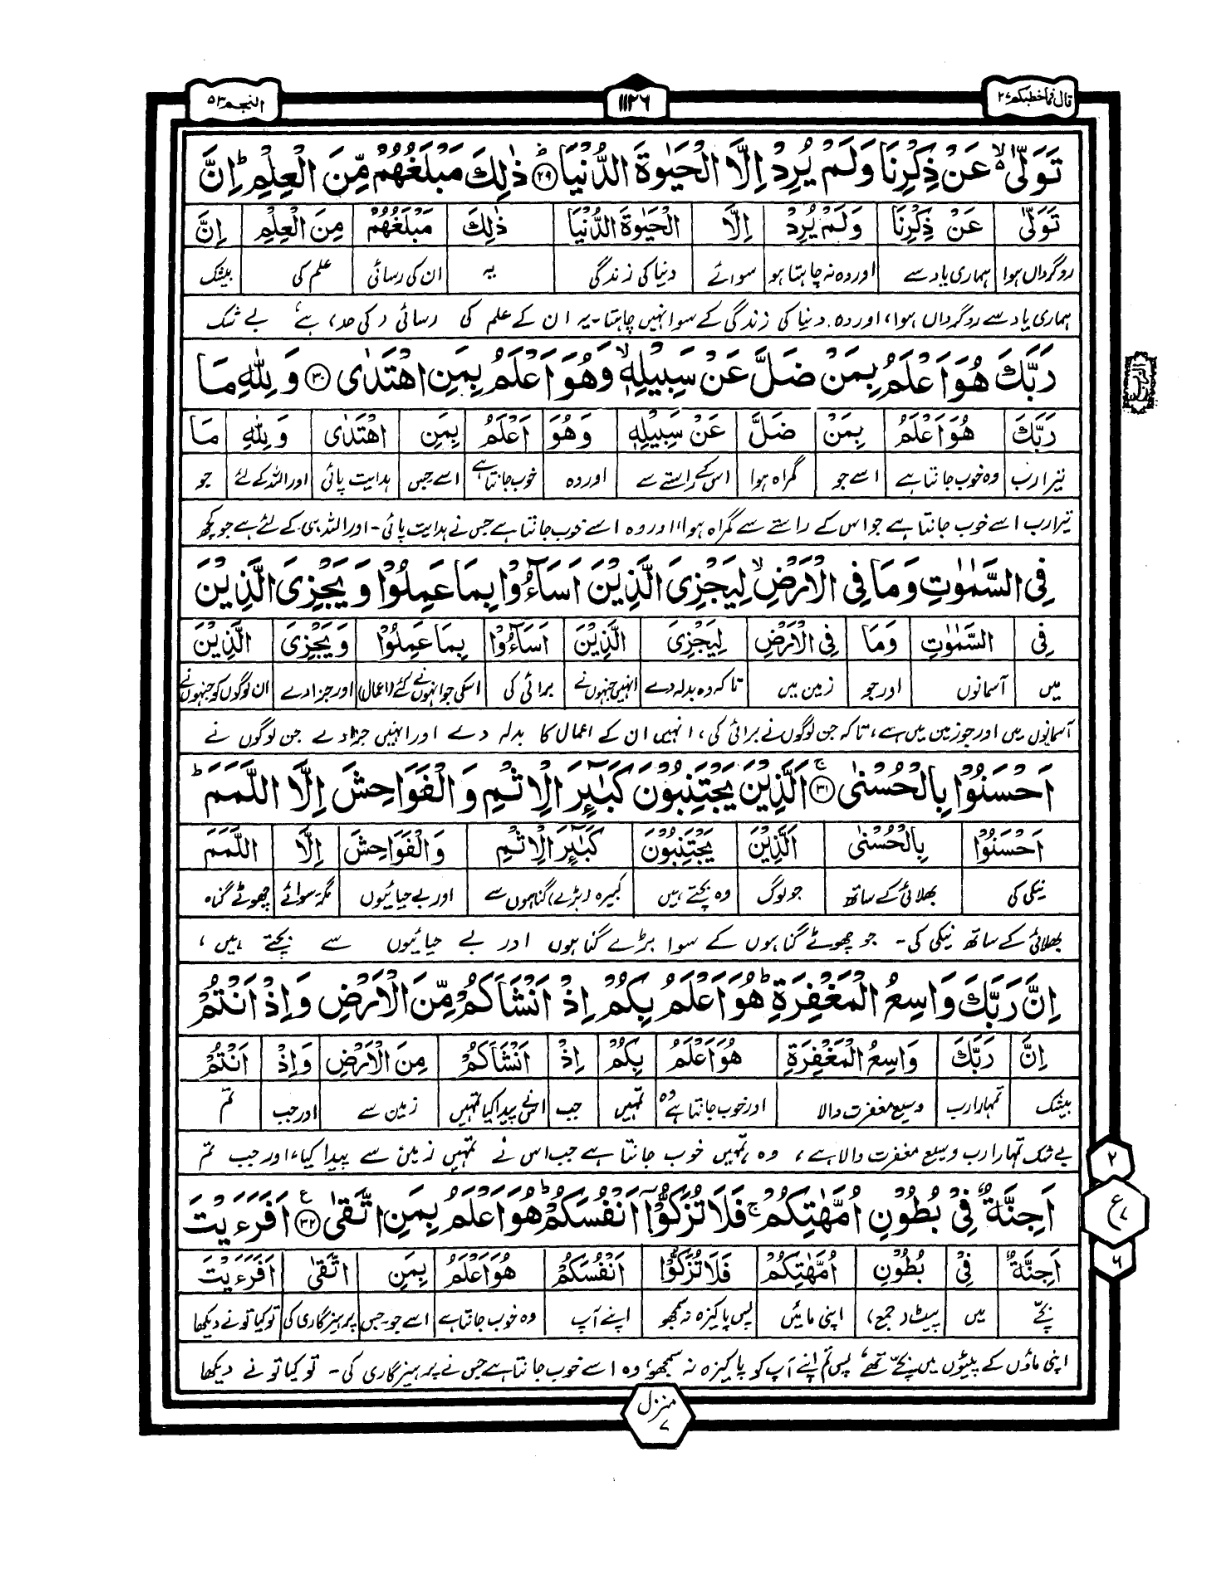 قال فما خطبكم ٢٧
١١٢٦
النجم ٥٣
تَوَلّٰى ۙ عَنْ ذِكْرِنَا وَلَمْ يُرِدْ اِلَّا الْحَيٰوةَ الدُّنْيَا ؕ ﴿۲۹﴾ ذٰلِكَ مَبْلَغُهُمْ مِّنَ الْعِلْمِ ؕ اِنَّ
تَوَلّٰى عَنْ ذِكْرِنَا وَلَمْ يُرِدْ اِلَّا الْحَيٰوةَ الدُّنْيَا ذٰلِكَ مَبْلَغُهُمْ مِنَ الْعِلْمِ اِنَّ
روگرداں ہوا ہماری یاد سے اور وہ نہ چاہتا ہو سوائے دنیا کی زندگی یہ ان کی رسائی علم کی بیشک
ہماری یاد سے روگرداں ہوا، اور وہ دنیا کی زندگی کے سوا نہیں چاہتا۔ یہ ان کے علم کی رسائی (کی حد) ہے بے شک
رَبَّكَ هُوَ اَعْلَمُ بِمَنْ ضَلَّ عَنْ سَبِيْلِهٖ ۙ وَهُوَ اَعْلَمُ بِمَنِ اهْتَدٰى ﴿۳۰﴾ وَ لِلّٰهِ مَا
رَبَّكَ هُوَ اَعْلَمُ بِمَنْ ضَلَّ عَنْ سَبِيْلِهٖ وَهُوَ اَعْلَمُ بِمَنِ اهْتَدٰى وَ لِلّٰهِ مَا
تیرا رب وہ خوب جانتا ہے اسے جو گمراہ ہوا اس کے راستے سے اور وہ خوب جانتا ہے اسے جس ہدایت پائی اور اللہ کے لئے جو
تیرا رب اسے خوب جانتا ہے جو اس کے راستے سے گمراہ ہوا اور وہ اسے خوب جانتا ہے جس نے ہدایت پائی۔ اور اللہ ہی کے لئے ہے جو کچھ
فِى السَّمٰوٰتِ وَمَا فِى الْاَرْضِ ۙ لِيَجْزِىَ الَّذِيْنَ اَسَآءُوْا بِمَا عَمِلُوْا وَ يَجْزِىَ الَّذِيْنَ
فِى السَّمٰوٰتِ وَمَا فِى الْاَرْضِ لِيَجْزِىَ الَّذِيْنَ اَسَآءُوْا بِمَا عَمِلُوْا وَ يَجْزِىَ الَّذِيْنَ
میں آسمانوں اور جو زمین میں تاکہ وہ بدلہ دے انہیں جنہوں نے برائی کی اسکی جو انہوں نے کئے (اعمال) اور جزا دے ان لوگوں کو جنہوں نے
آسمانوں میں اور جو زمین میں ہے، تاکہ جن لوگوں نے برائی کی، انہیں ان کے اعمال کا بدلہ دے اور انہیں جزا دے جن لوگوں نے
اَحْسَنُوْا بِالْحُسْنٰى ۚ ﴿۳۱﴾ اَلَّذِيْنَ يَجْتَنِبُوْنَ كَبٰٓئِرَ الْاِثْمِ وَ الْفَوَاحِشَ اِلَّا اللَّمَمَ ؕ
اَحْسَنُوْا بِالْحُسْنٰى اَلَّذِيْنَ يَجْتَنِبُوْنَ كَبٰٓئِرَ الْاِثْمِ وَ الْفَوَاحِشَ اِلَّا اللَّمَمَ
نیکی کی بھلائی کے ساتھ جو لوگ وہ بچتے ہیں کبیرہ (بڑے) گناہوں سے اور بے حیائیوں مگر سوائے چھوٹے گناہ
بھلائی کے ساتھ نیکی کی۔ جو چھوٹے گناہوں کے سوا بڑے گناہوں اور بے حیائیوں سے بچتے ہیں،
اِنَّ رَبَّكَ وَاسِعُ الْمَغْفِرَةِ ؕ هُوَ اَعْلَمُ بِكُمْ اِذْ اَنْشَاَكُمْ مِّنَ الْاَرْضِ وَ اِذْ اَنْتُمْ
اِنَّ رَبَّكَ وَاسِعُ الْمَغْفِرَةِ هُوَ اَعْلَمُ بِكُمْ اِذْ اَنْشَاَكُمْ مِنَ الْاَرْضِ وَ اِذْ اَنْتُمْ
بیشک تمہارا رب وسیع مغفرت والا وہ خوب جانتا ہے تمہیں جب اس نے پیدا کیا تمہیں زمین سے اور جب تم
بے شک تمہارا رب وسیع مغفرت والا ہے، وہ تمہیں خوب جانتا ہے جب اس نے تمہیں زمین سے پیدا کیا، اور جب تم
اَجِنَّةٌ فِىْ بُطُوْنِ اُمَّهٰتِكُمْ ۚ فَلَا تُزَكُّوْٓا اَنْفُسَكُمْ ؕ هُوَ اَعْلَمُ بِمَنِ اتَّقٰى ﴿۳۲﴾ اَفَرَءَيْتَ
اَجِنَّةٌ فِىْ بُطُوْنِ اُمَّهٰتِكُمْ فَلَا تُزَكُّوْٓا اَنْفُسَكُمْ هُوَ اَعْلَمُ بِمَنِ اتَّقٰى اَفَرَءَيْتَ
بچے میں پیٹ (جمع) اپنی مائیں پس پاکیزہ نہ سمجھو اپنے آپ وہ خوب جانتا ہے اسے جو۔جس پرہیزگاری کی تو کیا تو نے دیکھا
اپنی ماؤں کے پیٹوں میں بچے تھے، پس تم اپنے آپ کو پاکیزہ نہ سمجھو، وہ اسے خوب جانتا ہے جس نے پرہیزگاری کی۔ تو کیا تو نے دیکھا
٢
ع ٧
٦
منزل ٧